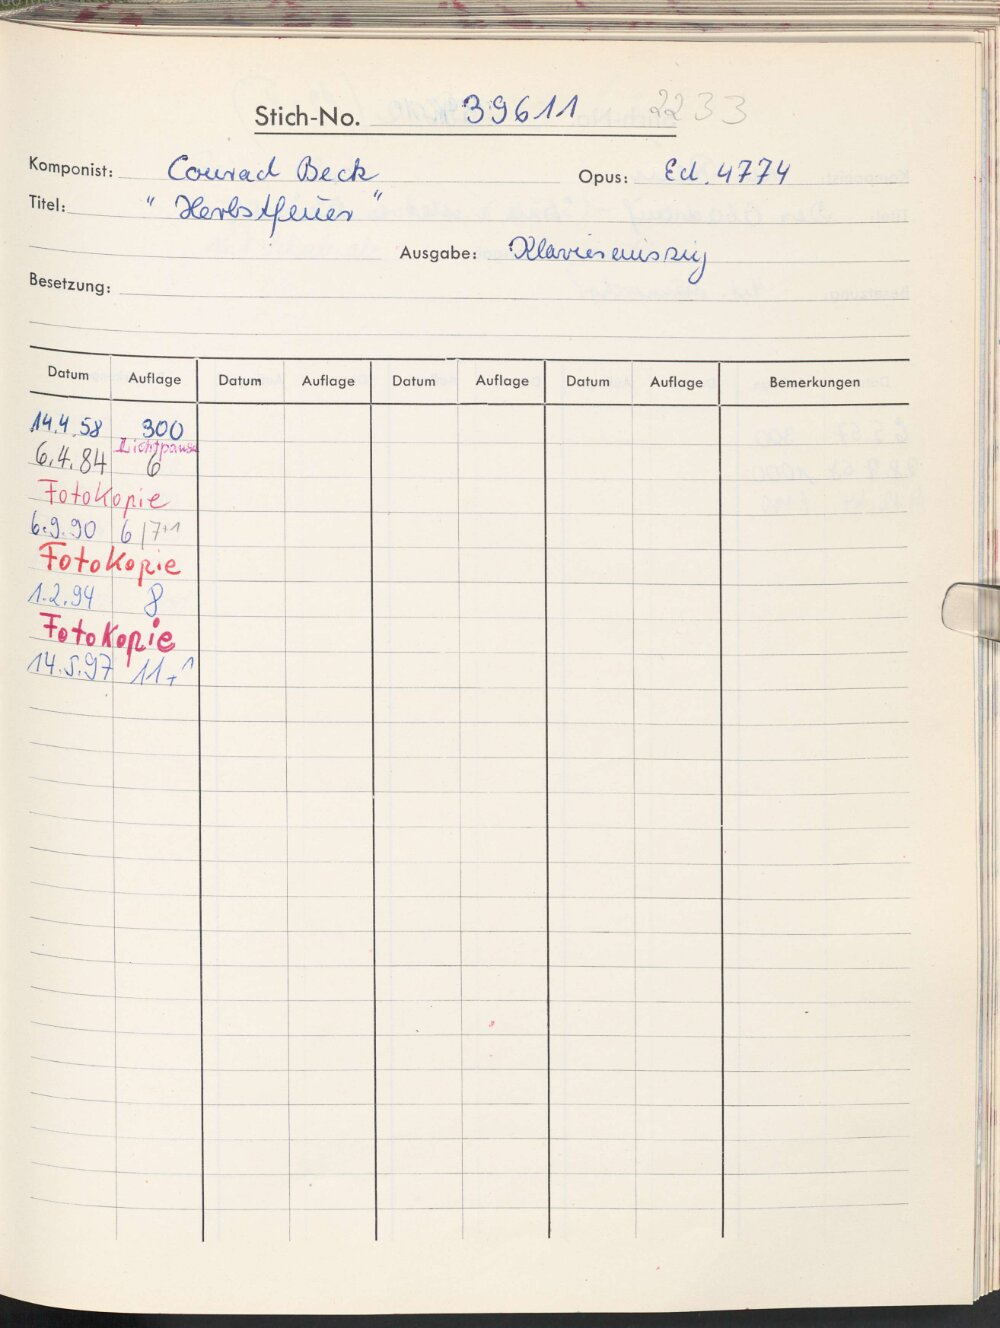 Stich-No. 39611 2233
Komponist: Conrad Beck Opus: Ed. 4774
Titel: "Herbstfeuer"
Ausgabe: Klavierauszug
Besetzung:
Datum Auflage Datum Auflage Datum Auflage Datum Auflage Bemerkungen
14.4.58 300
Lichtpause
6.4.84 6
Fotokopie
6.9.90 6/7+1
Fotokopie
1.2.94 8
Fotokopie
14.5.97 11+1